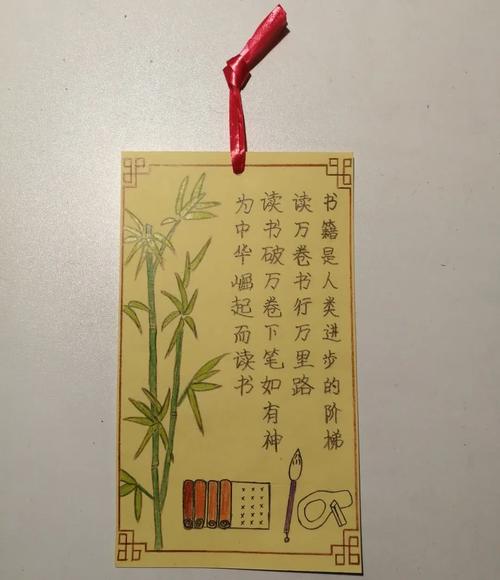 书籍是人类进步的阶梯
读万卷书行万里路
读书破万卷下笔如有神
为中华崛起而读书